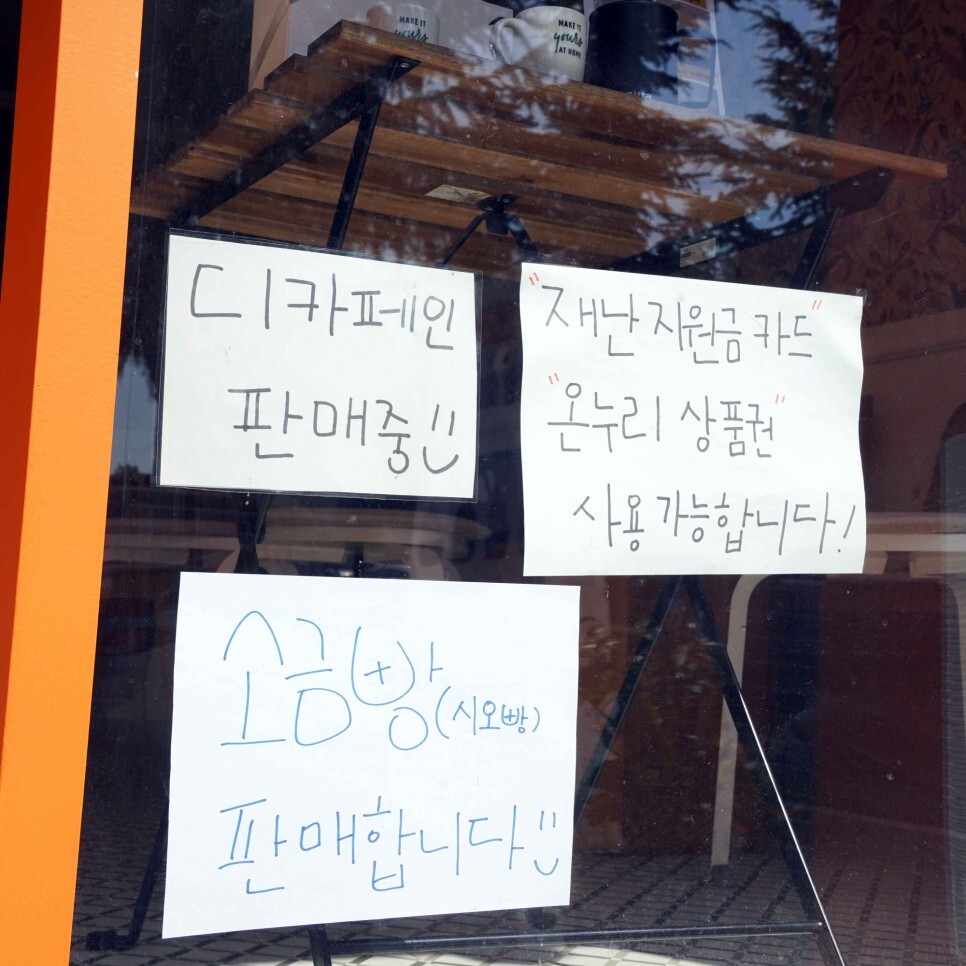 MAKE IT
yours
MAKE IT
yours
AT HOME
디카페인
판매중!!
"재난지원금 카드"
"온누리 상품권"
사용 가능합니다!
소금빵(시오빵)
판매합니다!!